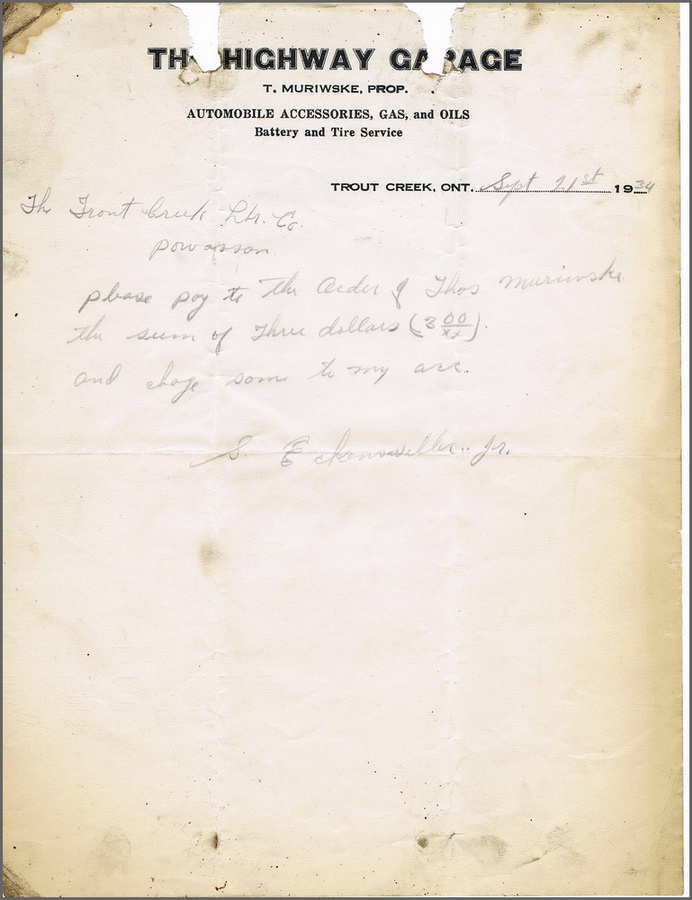 THE HIGHWAY GARAGE
T. MURIWSKE, PROP.
AUTOMOBILE ACCESSORIES, GAS, and OILS
Battery and Tire Service
TROUT CREEK, ONT. Sept 21st 1934
Th Trout Creek Lbr. Co.
Powassan
please pay to the Order of Thos Muriwske
the sum of three dollars (3 00/xx).
and chage same to my acc.
S. Eckensviller Jr.